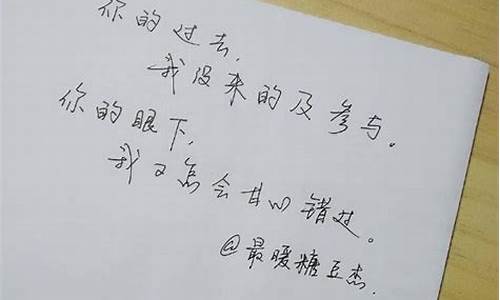 你的过去,
我没来的及参与。
你的眼下,
我又怎会甘心错过。
@最暖糖豆杰.